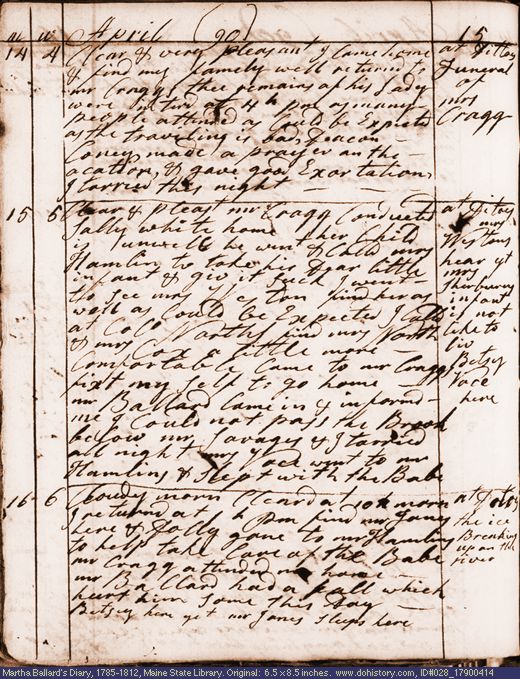 m w April (90) 15
14 4 Clear & very pleasant I Came home at ditoes
& find my family well returnd to Funeral
mr Craggs thee remains of his Lady of
were Intird at 4 h pm as many mrs
people attined as Could be Expectd Cragg
as the traveling is bad Deacon
Coney made a prayer on the
ocation & gave good Exortation
I tarried this night
15 5 Clear & pleast mr Cragg Conducted at ditoes
Sally white home her Child mrs
is unwell he went & Calld mrs Westons
Hamlin to take his Dear little hear yt
infant & giv it Suck I went mrs
to See mrs weston find her as Sherburny
well as Could be Expected I Calld infant
at Colo Norths find mrs North is not
& mrs Cox a little more like to
Comfortable Came to mr Craggs liv
fixt my Self to go home Betsy
mr Ballard Came in & informd
me I Could not pass the Brook here
below mr Savages & I tarried
all night mrs went to mr
Hamlins & Slept with the Babe
16 6 Cloudy morn Cleard at 10 h morn at ditoes
I returnd at h pm find mr Jones the ice
here & Dolly gone to mr Hamlins Breaking
to help take Care of the Babe up on the
mr Cragg attended me home river
mr Ballard had a fall which
hurt him Some this day
Betsey here yet mr Jones Sleeps here
Martha Ballard's Diary, 1785-1812, Maine State Library. Original: 6.5 x 8.5 inches. www.dohistory.org, ID#028_17900414